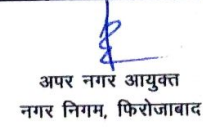 अपर नगर आयुक्त
नगर निगम, फिरोजाबाद